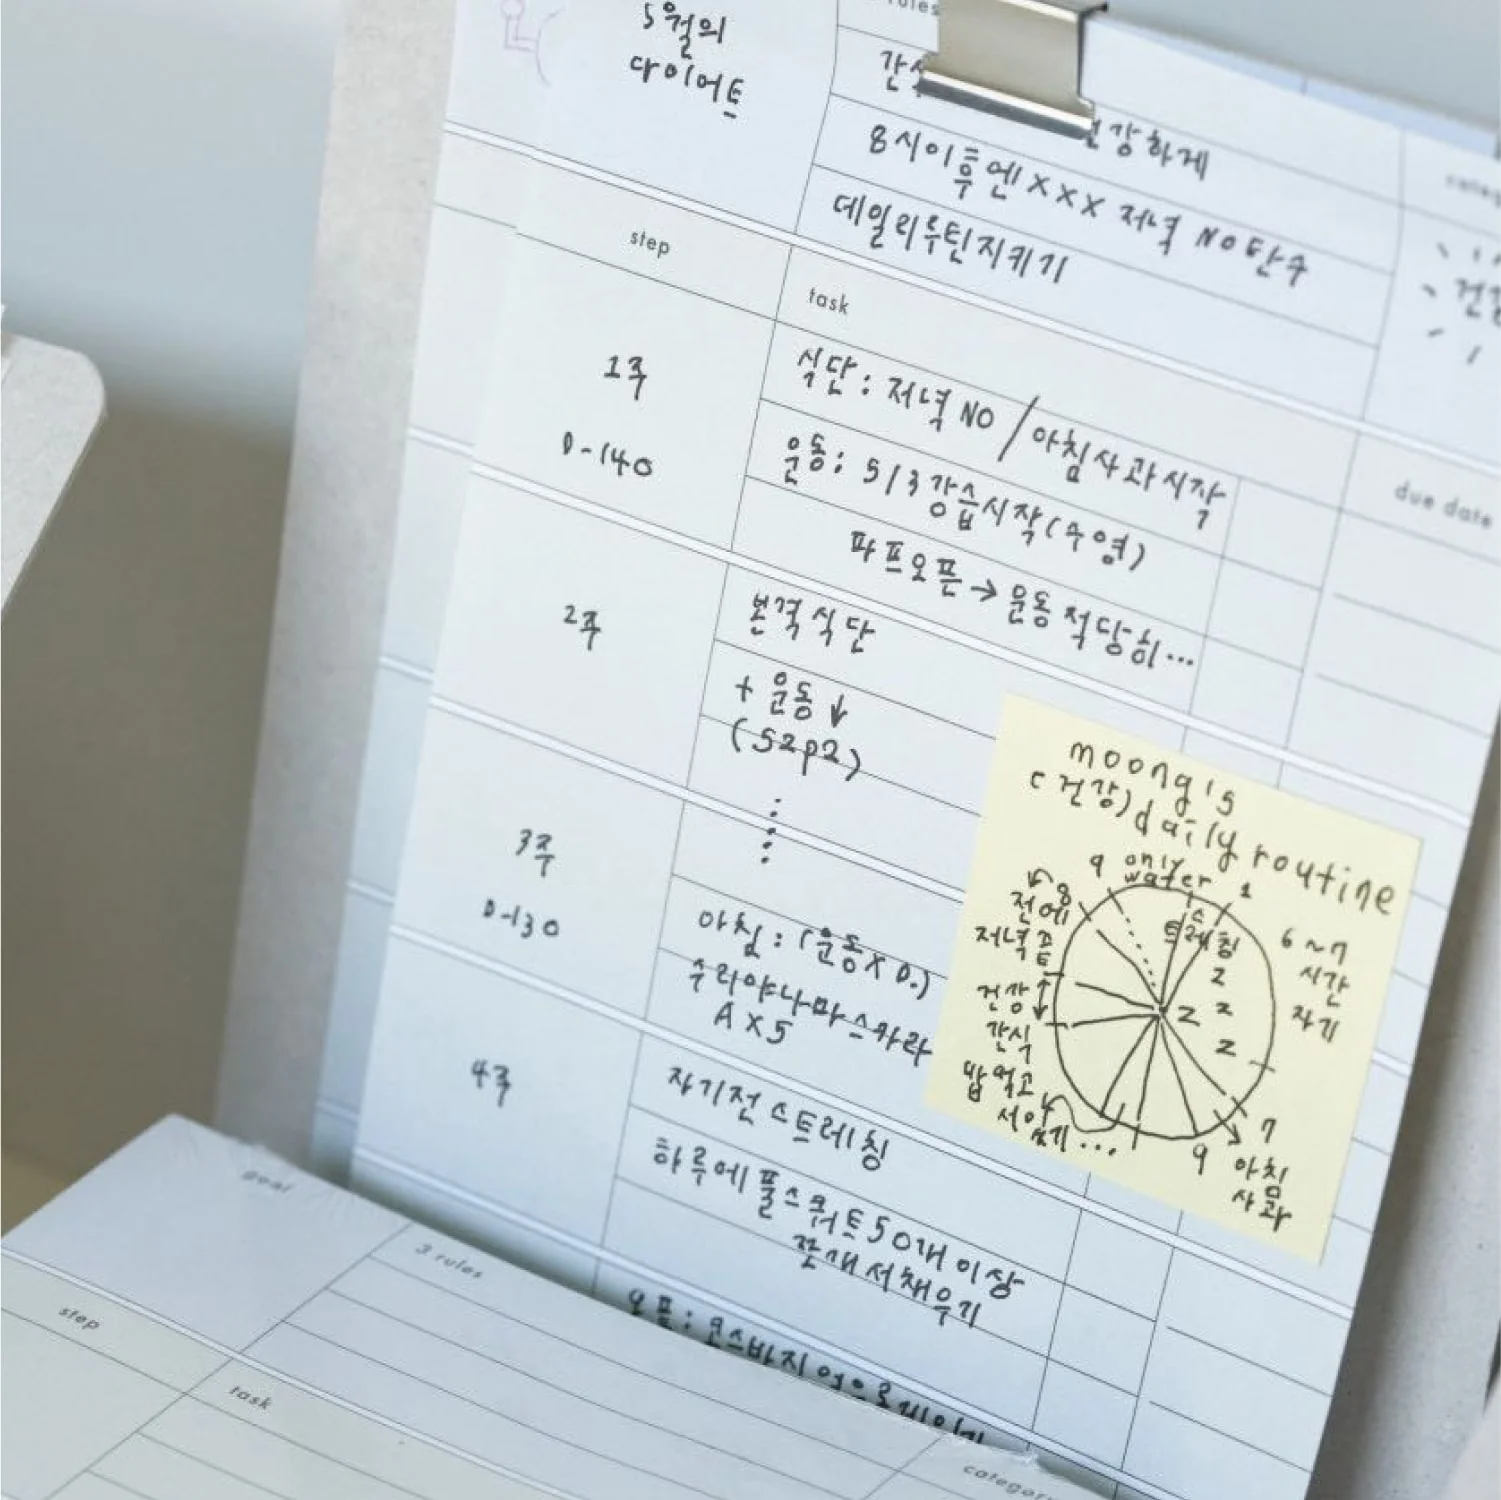 5월의
다이어트
rules
강하게
8시이후엔 XXX 저녁 NO 탄수
데일리루틴지키기
step
task
due date
1주
D-140
식단: 저녁 NO / 아침사과시작
운동: 5/3 강습시작 (수영)
파프오픈 → 운동 적당히...
2주
본격식단
+ 운동↓
(S2p2)
3주
D-130
아침: (운동X D.)
수리야나마스카라
A X 5
4주
자기전 스트레칭
하루에 풀스쿼트 50개 이상
쪼개서채우기
moong's
(건강) daily routine
9 only water 1
8
전에
저녁 끝
스트레칭
6~7
시간
자기
z
z
z
z
건강
간식
밥 먹고
7
9
아침
사과
goal
3 rules
step
task
category